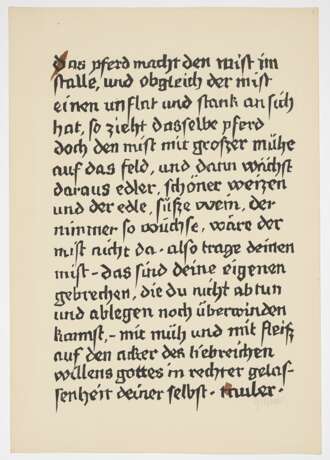 das pferd macht den mist im
stalle, und obgleich der mist
einen unflat und stank an sich
hat, so zieht dasselbe pferd
doch den mist mit groszer mühe
auf das feld, und dann wächst
daraus edler, schöner weizen
und der edle, süße wein, der
nimmer so wüchse, wäre der
mist nicht da · also trage deinen
mist - das sind deine eigenen
gebrechen, die du nicht abtun
und ablegen noch überwinden
kannst, - mit müh und mit fleiß
auf den acker des liebreichen
willens gottes in rechter gelas-
senheit deiner selbst · tauler ·